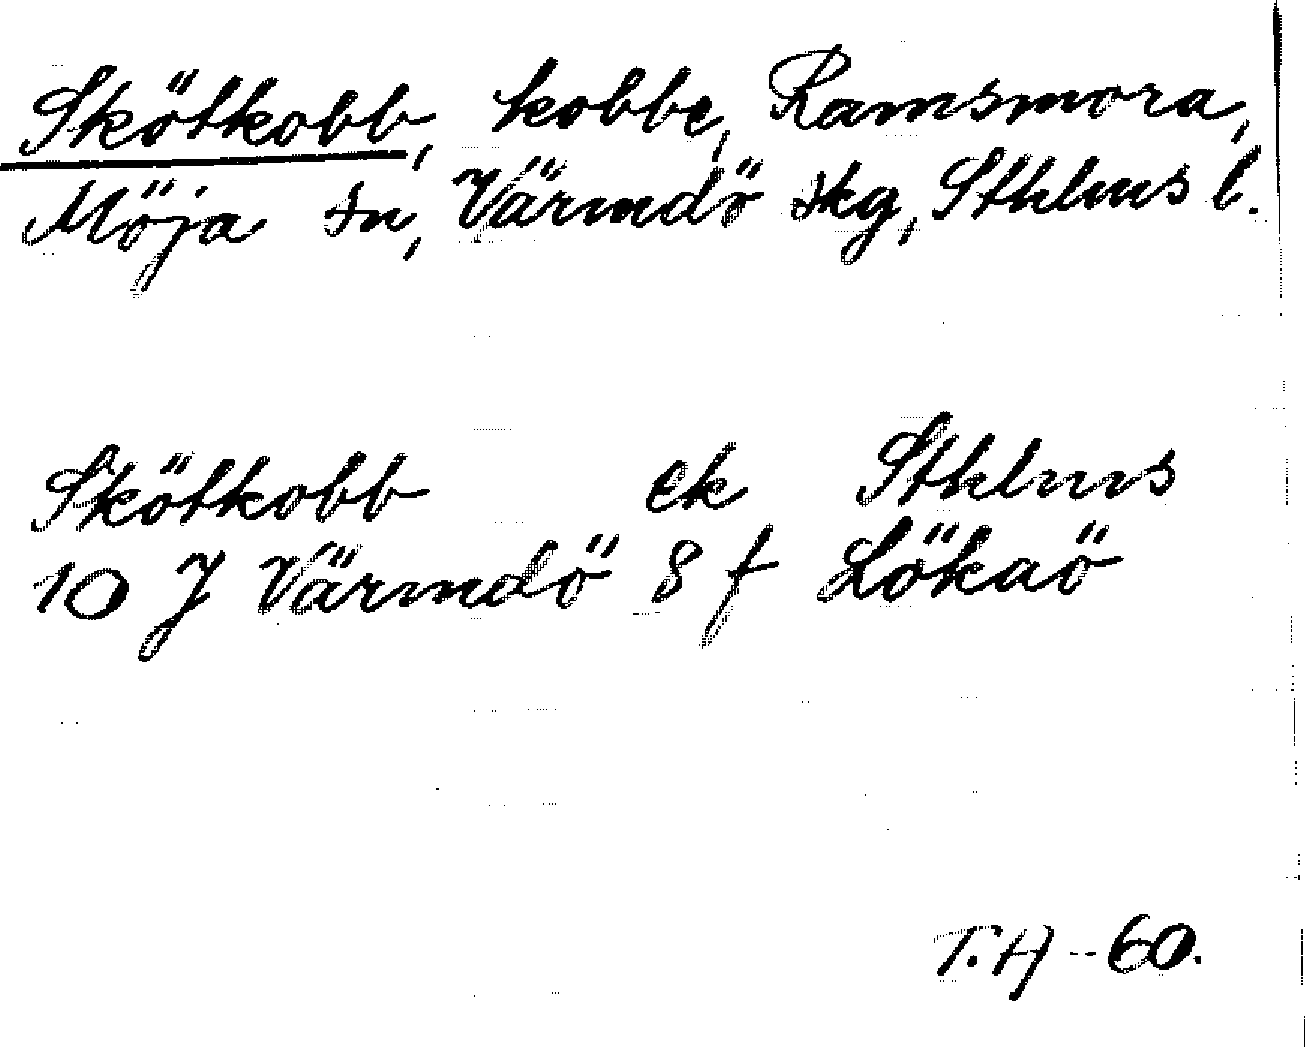 Skötkobb, kobbe, Ramsmora,
Möja sn, Värmdö skg, Sthlms l.
Skötkobb ek Sthlms
10 J Värmdö 8 f Lökaö
T.H -60.